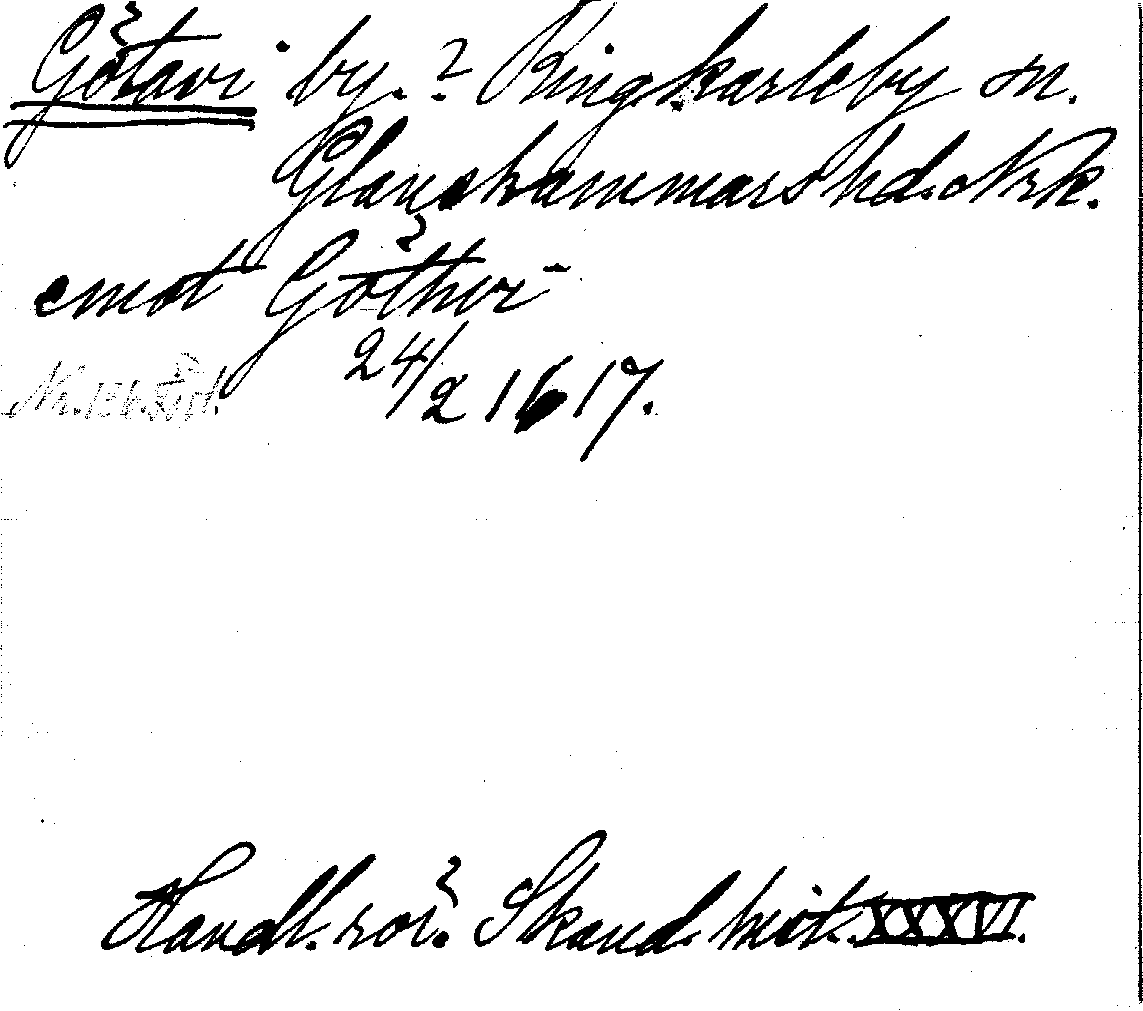 Götavi by. ? Ringkarleby sn.
Glanshammars hd. Nrk.
emot Göthvi
24/2 1617.
Handl. rör. Skand. hist. XXXVI.